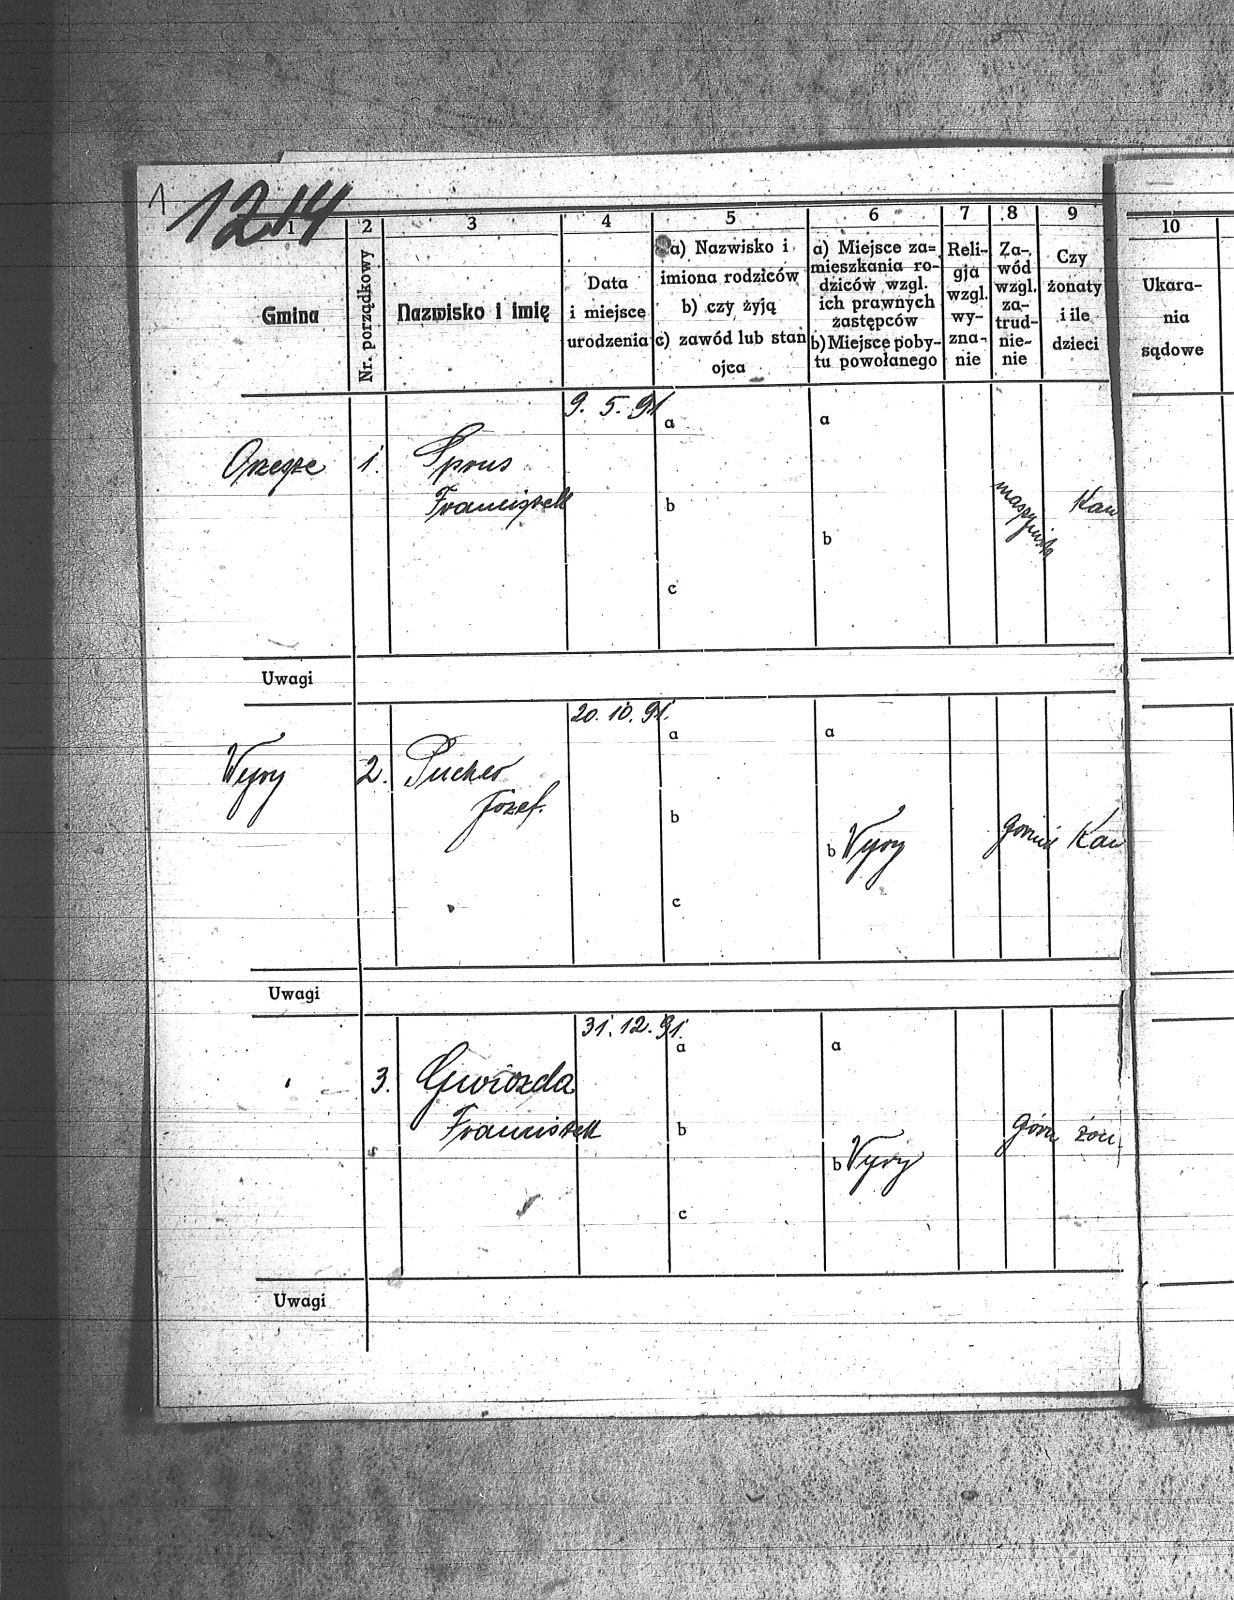 1214
1
2
3
4
5
6
7
8
9
10
Gmina
Nr. porządkowy
Nazwisko i imię
Data
i miejsce
urodzenia
a) Nazwisko i
imiona rodziców
b) czy żyją
c) zawód lub stan
ojca
a) Miejsce za=
mieszkania ro-
dziców wzgl.
ich prawnych
zastępców
b) Miejsce poby-
tu powołanego
Reli-
gja
wzgl.
wy-
zna-
nie
Za-
wód
wzgl.
za-
trud-
nie-
nie
Czy
żonaty
i ile
dzieci
Ukara-
nia
sądowe
9. 5. 91
Orzesze
1.
Sprus
Franciszek
a
b
c
a
b
maszynista
Kaw
Uwagi
20. 10. 91.
Wyry
2.
Józef.
a
b
c
a
b Wyry
Kaw
Uwagi
31. 12. 91.
3.
Gwiozda
Franciszek
a
b
c
a
b Wyry
górn
żon.
Uwagi